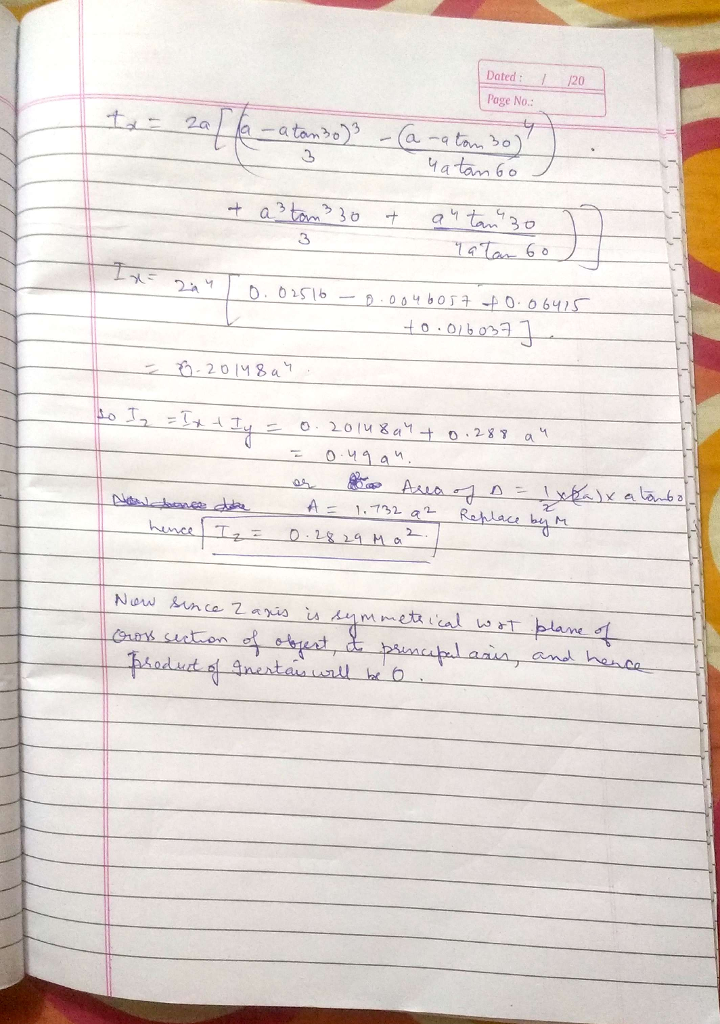 Dated : / /20
Page No.:
Ix = 2a [ ( (a - a tan 30)³ / 3 - (a - a tan 30)⁴ / 4a tan 60 )
+ a³ tan³ 30 / 3 + a⁴ tan⁴ 30 / 4a tan 60 ) ]
Ix = 2a⁴ [ 0.02516 - 0.0046057 + 0.06415
+ 0.016037 ]
= 0.20148 a⁴
so Iz = Ix + Iy = 0.20148a⁴ + 0.288 a⁴
= 0.49 a⁴.
or Area of Δ = 1/2 x (2a) x a tan 60
A = 1.732 a² Replace by M
hence Iz = 0.2829 M a².
Now since Z axis is symmetrical wrt plane of
cross section of object, it principal axis, and hence
product of Inertais will be 0.